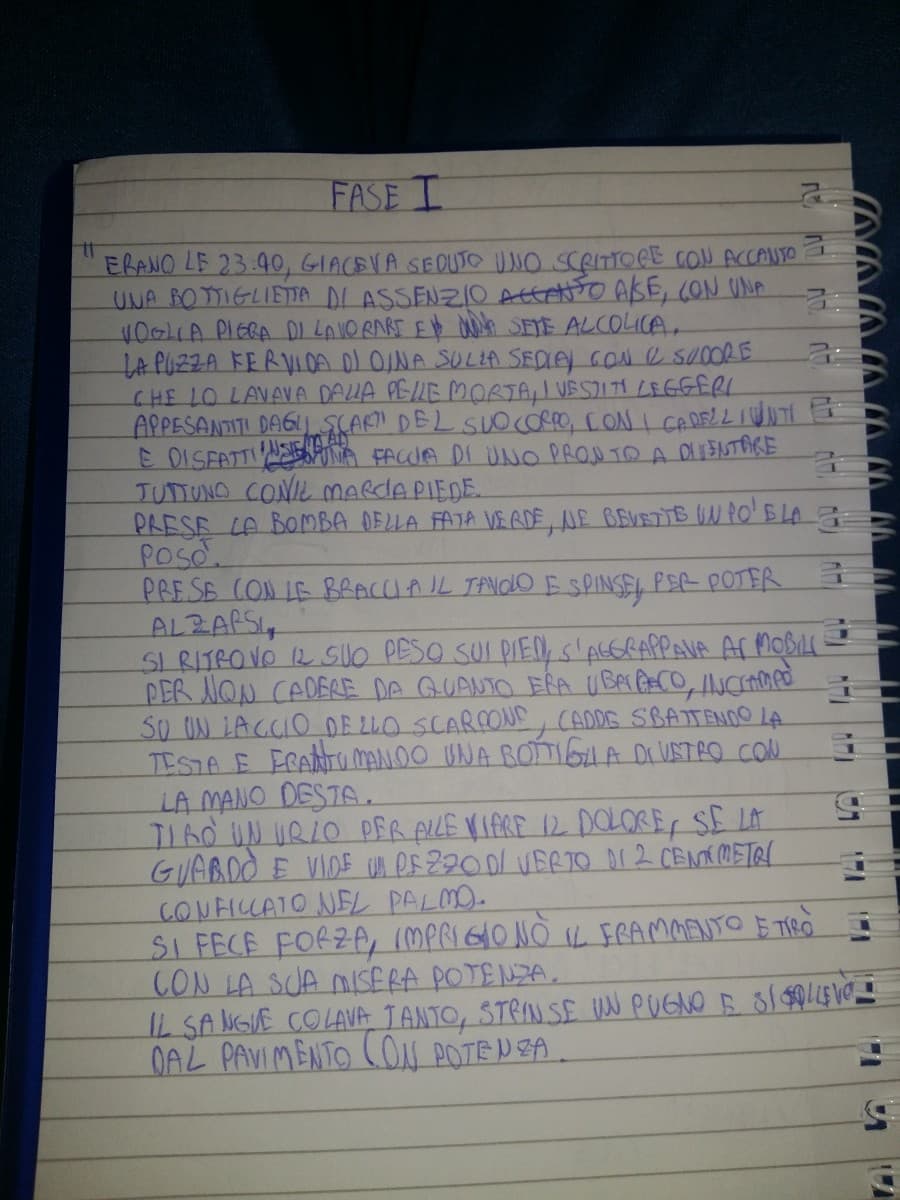 FASE I
" ERANO LE 23:40, GIACEVA SEDUTO UNO SCRITTORE CON ACCANTO
UNA BOTTIGLIETTA DI ASSENZIO ACCANTO A SE, CON UNA
VOGLIA PIGRA DI LAVORARE E SETE ALCOLICA.
LA PUZZA FERVIDA DI SULLA SEDIA, CON IL SUDORE
CHE LO LAVAVA DALLA PELLE MORTA, I VESTITI LEGGERI
APPESANTITI DAGLI SCARTI DEL SUO CORPO, CON I CAPELLI UNTI
E DISFATTI INSIEME AD UNA FACCIA DI UNO PRONTO A DIVENTARE
TUTTUNO CON IL MARCIAPIEDE.
PRESE LA BOMBA DELLA FATA VERDE, NE BEVETTE UN PO' E LA
POSÒ.
PRESE CON LE BRACCIA IL TAVOLO E SPINSE, PER POTER
ALZARSI,
SI RITROVO IL SUO PESO SUI PIEDI, S'AGGRAPPAVA AI MOBILI
PER NON CADERE DA QUANTO ERA UBRIACO, INCIAMPÒ
SU UN LACCIO DELLO SCARPONE, CADDE SBATTENDO LA
TESTA E FRANTUMANDO UNA BOTTIGLIA DI VETRO CON
LA MANO DESTA.
TIRÒ UN URLO PER ALLEVIARE IL DOLORE, SE LA
GUARDÒ E VIDE UN PEZZO DI VERTO DI 2 CENTIMETRI
CONFICCATO NEL PALMO.
SI FECE FORZA, IMPRIGIONÒ IL FRAMMENTO E TIRÒ
CON LA SUA MISERA POTENZA.
IL SANGUE COLAVA TANTO, STRINSE UN PUGNO E SI SOLLEVÒ
DAL PAVIMENTO CON POTENZA.